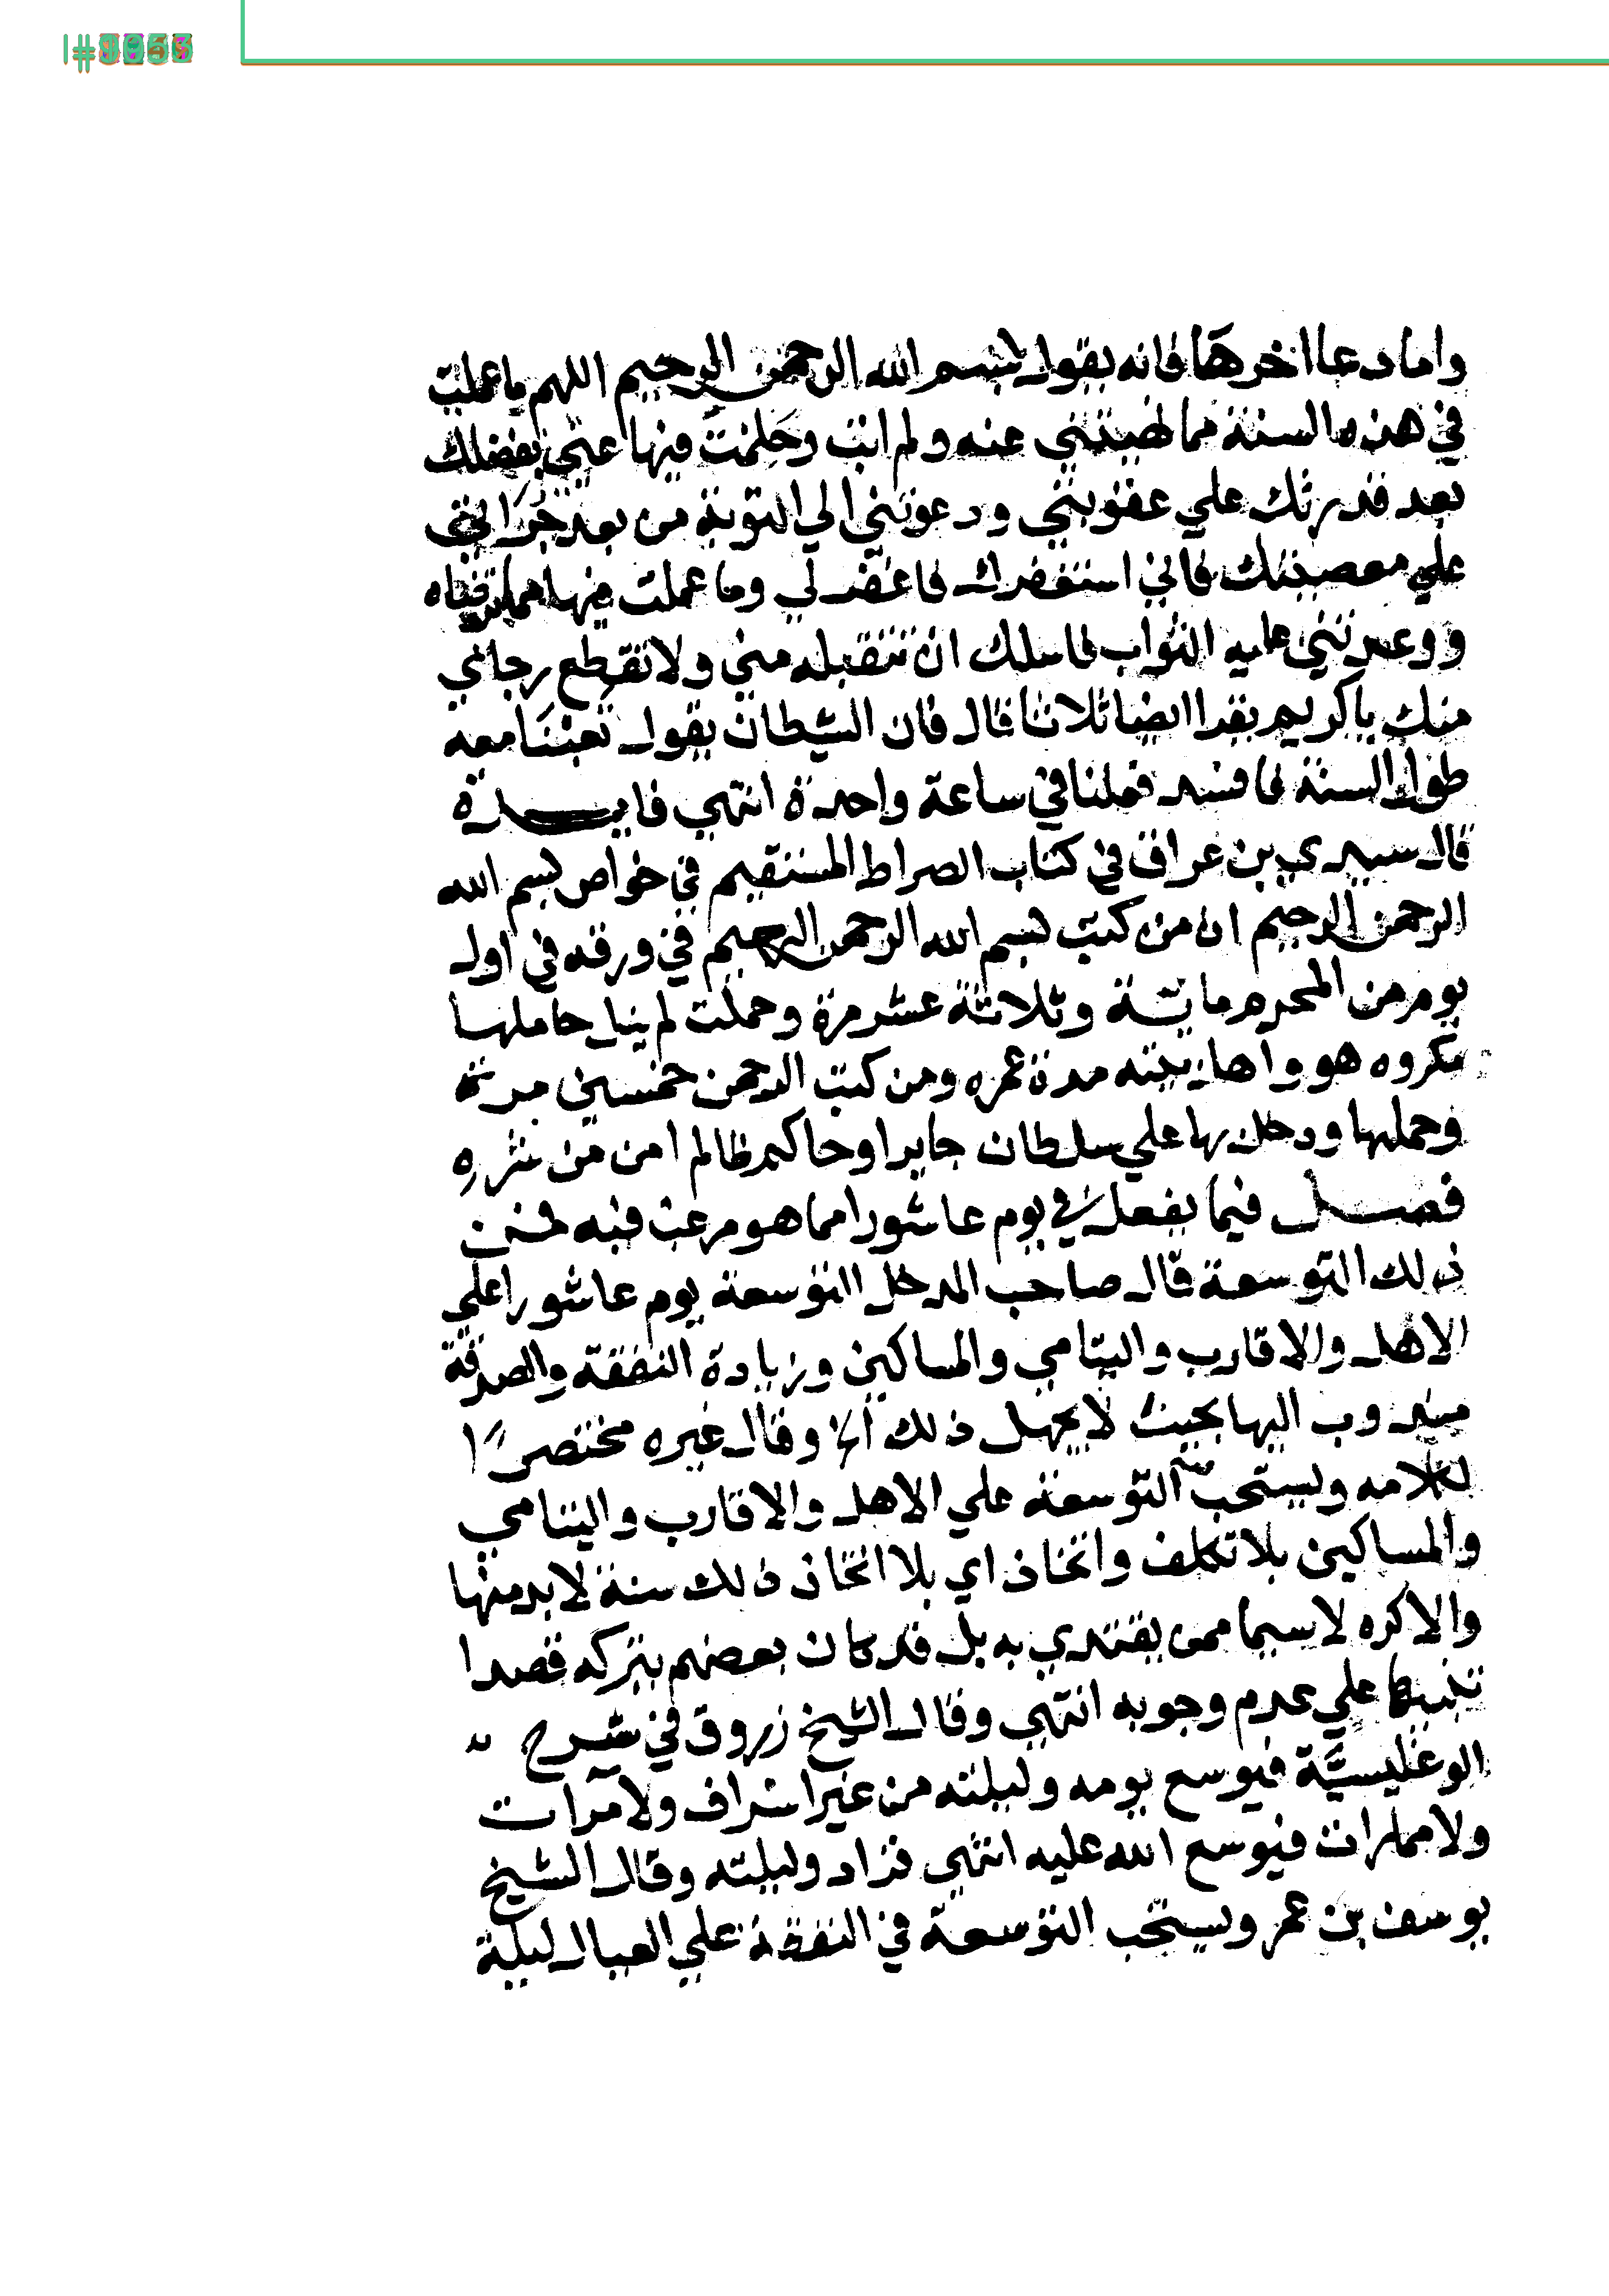 واما دعا اخرها فانه يقول بسم الله الرحمن الرحيم اللهم ما عملت
في هذه السنة مما نهيتني عنه ولم اتب وحلمت فيها عني بفضلك
بعد قدرتك علي عقوبتي ودعوتني الي التوبة من بعد جراتي
علي معصيتك فاني استغفرك فاغفر لي وما عملت فيها مما ترضاه
ووعدتني عليه الثواب فاسلك ان تتقبله مني ولا تقطع رجائي
منك ياكريم يقرا ايضا ثلاثا قال فان الشيطان يقول تعبنا معه
طول السنة فافسد فعلنا في ساعة واحدة انتهي فايدة
قال سيدي بن عراق في كتاب الصراط المستقيم في خواص بسم الله
الرحمن الرحيم ان من كتب بسم الله الرحمن الرحيم في ورقه في اول
يوم من المحرم ماية وثلاثة عشر مرة وحملت لم ينل حاملها
مكروه هو واهل بيته مدة عمره ومن كتب الرحمن خمسين مرة
وحملها ودخل بها علي سلطان جاير او حاكم ظالم امن من شره
فصل فيما يفعل في يوم عاشورا مما هو مرغب فيه فمن
ذلك التوسعة قال صاحب المدخل التوسعة يوم عاشورا علي
الاهل والاقارب واليتامي والمساكين وزيادة النفقة والصدقة
مندوب اليها بحيث لا يجهل ذلك الخ وقال غيره مختصرًا
لكلامه ويستحب التوسعة علي الاهل والاقارب واليتامي
والمساكين بلا تكلف واتخاذ اي بلا اتخاذ ذلك سنة لابد منها
والا كره لاسيما ممن يقتدي به بل قد كان بعضهم يتركه قصدا
تنبيها علي عدم وجوبه انتهي وقال الشيخ زروق في شرح
الوغليسيَّة فيوسع يومه وليلته من غير اسراف ولا مرآت
ولا ممارات فيوسع الله عليه انتهي فزاد وليلته وقال الشيخ
يوسف بن عمر ويستحب التوسعة في النفقة علي العيال ليلة